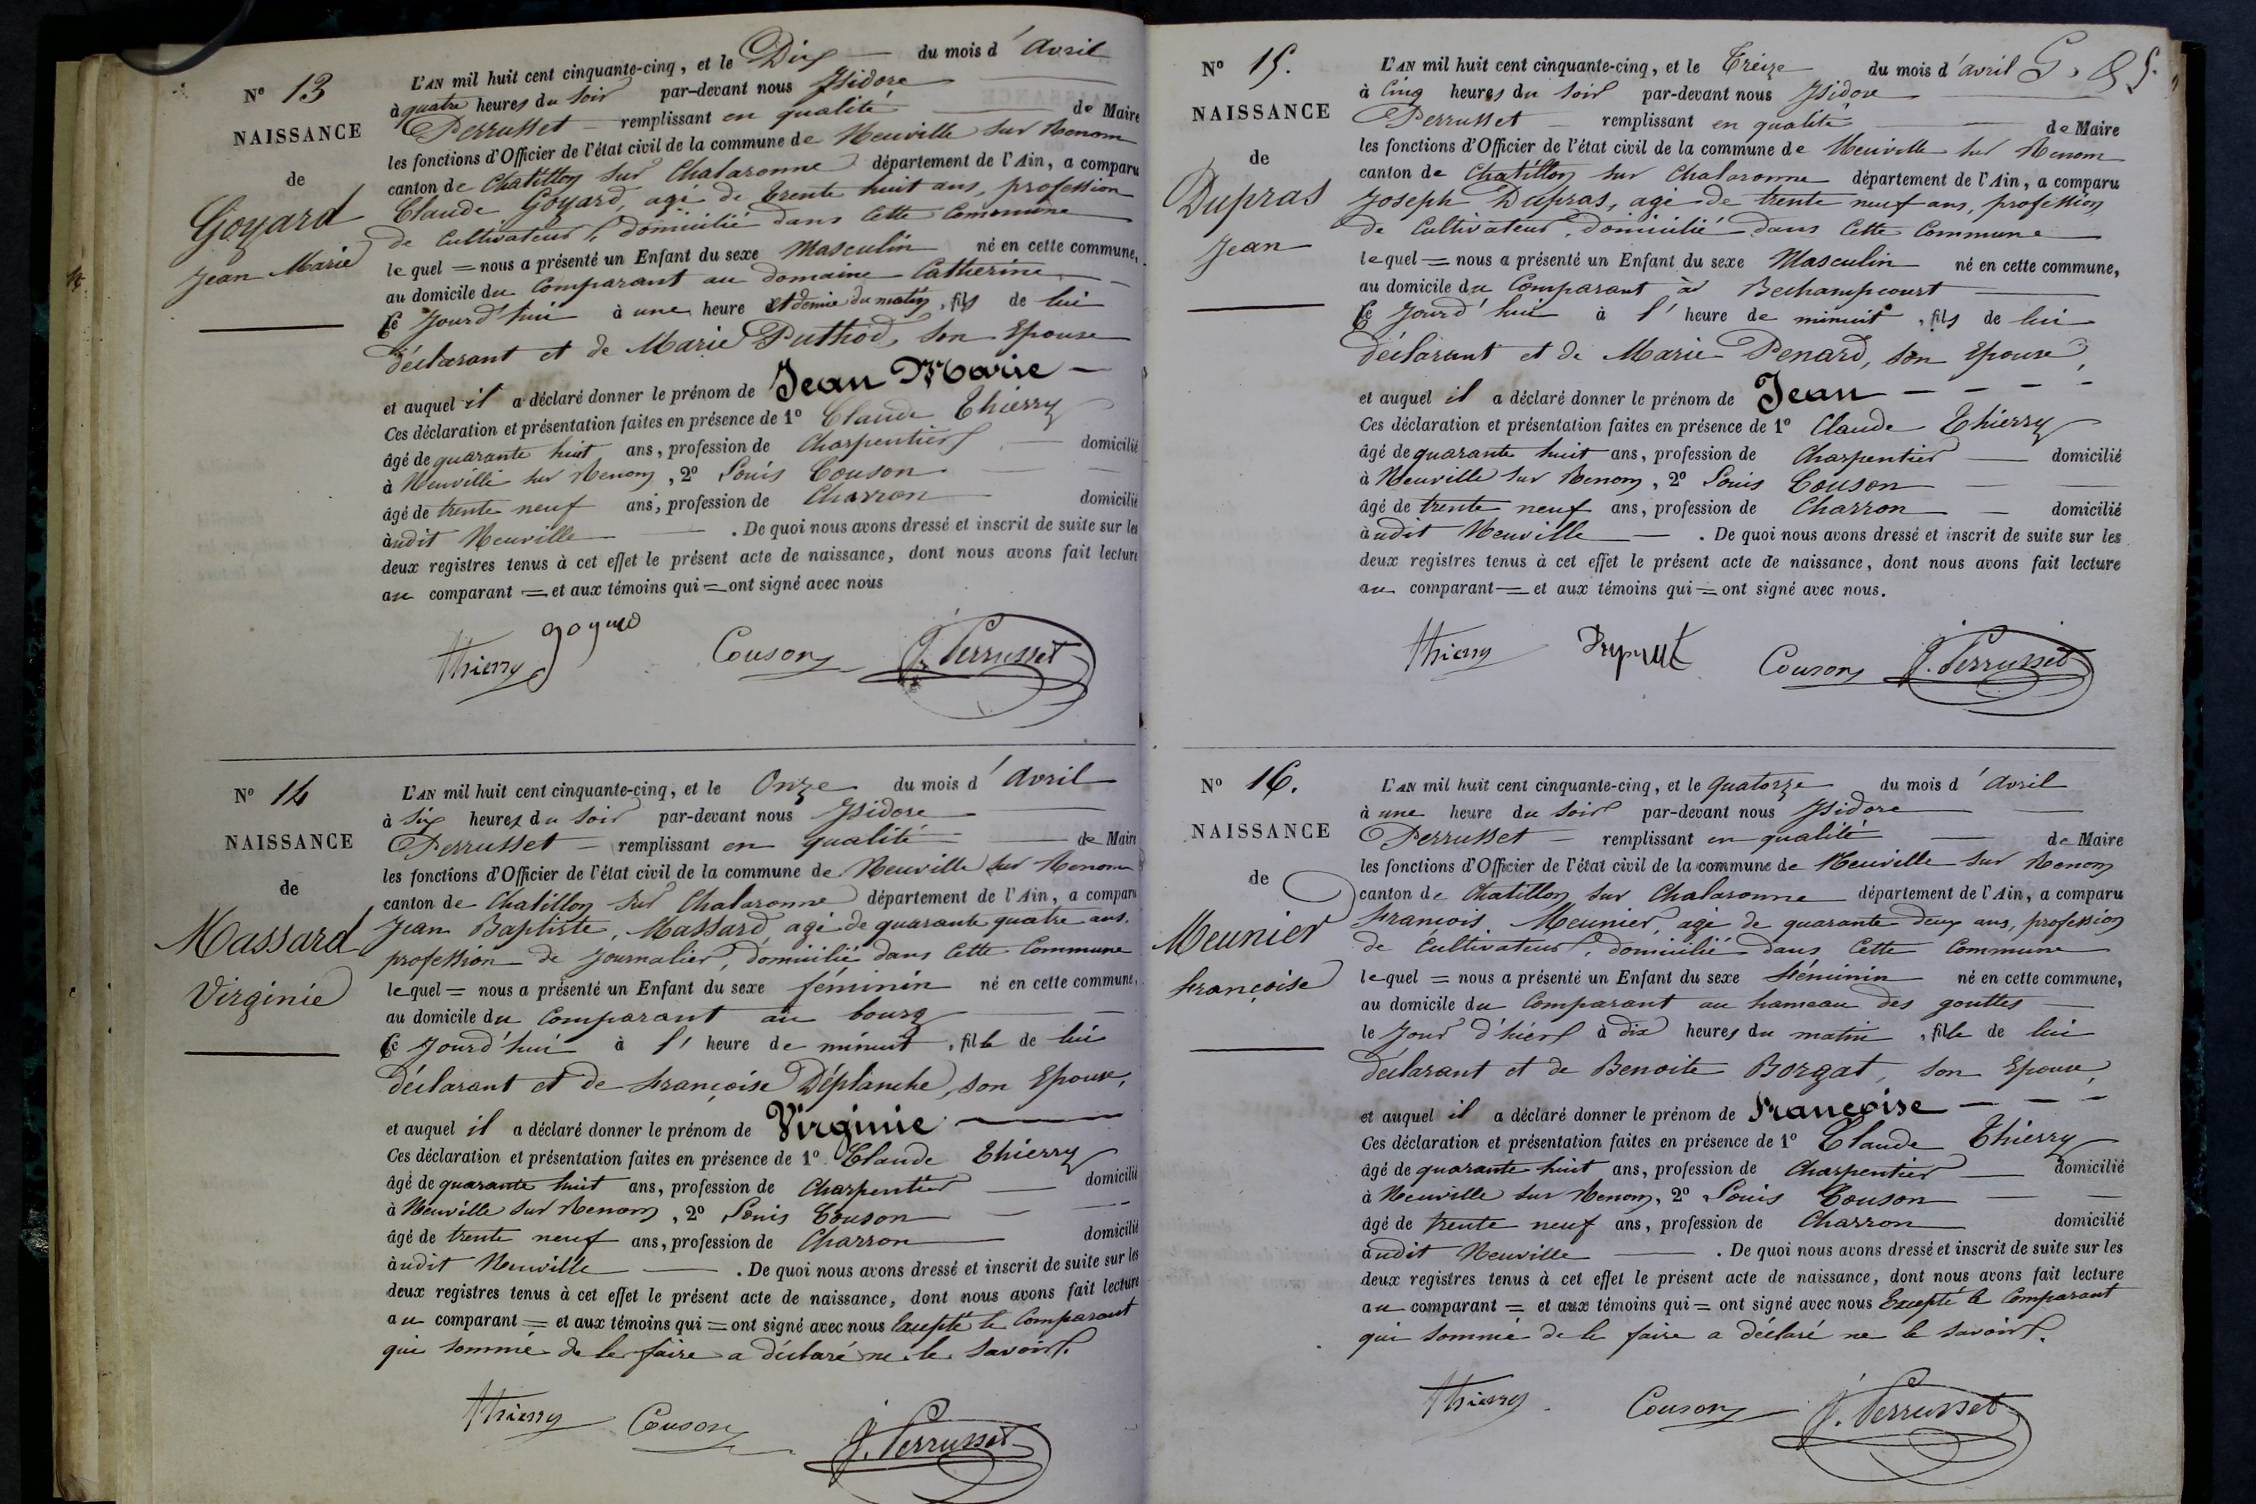 N° 13
NAISSANCE
de
Goyard
Jean Marie
L'AN mil huit cent cinquante-cinq, et le Dix du mois d'Avril
à quatre heures du Soir par-devant nous Isidore
Perrusset remplissant en qualité de Maire
les fonctions d'Officier de l'état civil de la commune de Neuville sur Renom
canton de Chatillon sur Chalaronne département de l'Ain, a comparu
Claude Goyard, agé de trente huit ans, profession
de Cultivateur, domicilié dans Cette Commune
lequel = nous a présenté un Enfant du sexe Masculin né en cette commune,
au domicile du Comparant au domaine Catherine
Ce Jourd'hui à une heure et demie du matin, fils de lui
déclarant et de Marie Puthod, son Epouse
et auquel il a déclaré donner le prénom de Jean Marie
Ces déclaration et présentation faites en présence de 1° Claude Thierry
âgé de quarante huit ans, profession de Charpentier domicilié
à Neuville sur Renom, 2° Louis Couson
âgé de trente neuf ans, profession de Charron domicilié
audit Neuville . De quoi nous avons dressé et inscrit de suite sur les
deux registres tenus à cet effet le présent acte de naissance, dont nous avons fait lecture
au comparant = et aux témoins qui = ont signé avec nous
Thierry goyard Couson J. Perrusset
N° 14
NAISSANCE
de
Massard
Virginie
L'AN mil huit cent cinquante-cinq, et le Onze du mois d'Avril
à Six heures du Soir par-devant nous Isidore
Perrusset remplissant en qualité de Maire
les fonctions d'Officier de l'état civil de la commune de Neuville sur Renom
canton de Chatillon sur Chalaronne département de l'Ain, a comparu
Jean Baptiste, Massard agé de quarante quatre ans.
profession de Journalier, domicilié dans Cette Commune
lequel = nous a présenté un Enfant du sexe féminin né en cette commune,
au domicile du Comparant au bourg
Ce Jourd'hui à l'heure de minuit, fille de lui
déclarant et de françoise Déplanche, son Epouse,
et auquel il a déclaré donner le prénom de Virginie
Ces déclaration et présentation faites en présence de 1° Claude Thierry
âgé de quarante huit ans, profession de Charpentier domicilié
à Neuville sur Renom, 2° Louis Couson
âgé de trente neuf ans, profession de Charron domicilié
audit Neuville . De quoi nous avons dressé et inscrit de suite sur les
deux registres tenus à cet effet le présent acte de naissance, dont nous avons fait lecture
au comparant = et aux témoins qui = ont signé avec nous Excepté le Comparant
qui sommé de le faire a déclaré ne le Savoir.
Thierry Couson J. Perrusset
N° 15.
NAISSANCE
de
Dupras
Jean
L'AN mil huit cent cinquante-cinq, et le Treize du mois d'avril
à Cinq heures du Soir par-devant nous Isidore
Perrusset remplissant en qualité de Maire
les fonctions d'Officier de l'état civil de la commune de Neuville sur Renom
canton de Chatillon sur Chalaronne département de l'Ain, a comparu
Joseph Dupras, agé de trente neuf ans, profession
de Cultivateur, domicilié dans Cette Commune
lequel = nous a présenté un Enfant du sexe Masculin né en cette commune,
au domicile du Comparant à Bechampcourt
Ce Jourd'hui à l'heure de minuit, fils de lui
déclarant et de Marie Penard, son Epouse,
et auquel il a déclaré donner le prénom de Jean
Ces déclaration et présentation faites en présence de 1° Claude Thierry
âgé de quarante huit ans, profession de Charpentier domicilié
à Neuville sur Renom, 2° Louis Couson
âgé de trente neuf ans, profession de Charron domicilié
audit Neuville . De quoi nous avons dressé et inscrit de suite sur les
deux registres tenus à cet effet le présent acte de naissance, dont nous avons fait lecture
au comparant = et aux témoins qui = ont signé avec nous.
Thierry Couson J. Perrusset
N° 16.
NAISSANCE
de
Meunier
françoise
L'AN mil huit cent cinquante-cinq, et le quatorze du mois d'Avril
à une heure du Soir par-devant nous Isidore
Perrusset remplissant en qualité de Maire
les fonctions d'Officier de l'état civil de la commune de Neuville sur Renom
canton de Chatillon sur Chalaronne département de l'Ain, a comparu
francois Meunier, agé de quarante deux ans, profession
de Cultivateur, domicilié dans Cette Commune
lequel = nous a présenté un Enfant du sexe féminin né en cette commune,
au domicile du Comparant au hameau des gouttes
le Jour d'hier à dix heures du matin, fille de lui
déclarant et de Benoite Borgat, son Epouse,
et auquel il a déclaré donner le prénom de françoise
Ces déclaration et présentation faites en présence de 1° Claude Thierry
âgé de quarante huit ans, profession de Charpentier domicilié
à Neuville sur Renom, 2° Louis Couson
âgé de trente neuf ans, profession de Charron domicilié
audit Neuville . De quoi nous avons dressé et inscrit de suite sur les
deux registres tenus à cet effet le présent acte de naissance, dont nous avons fait lecture
au comparant = et aux témoins qui = ont signé avec nous Excepté le Comparant
qui sommé de le faire a déclaré ne le savoir.
Thierry Couson J. Perrusset